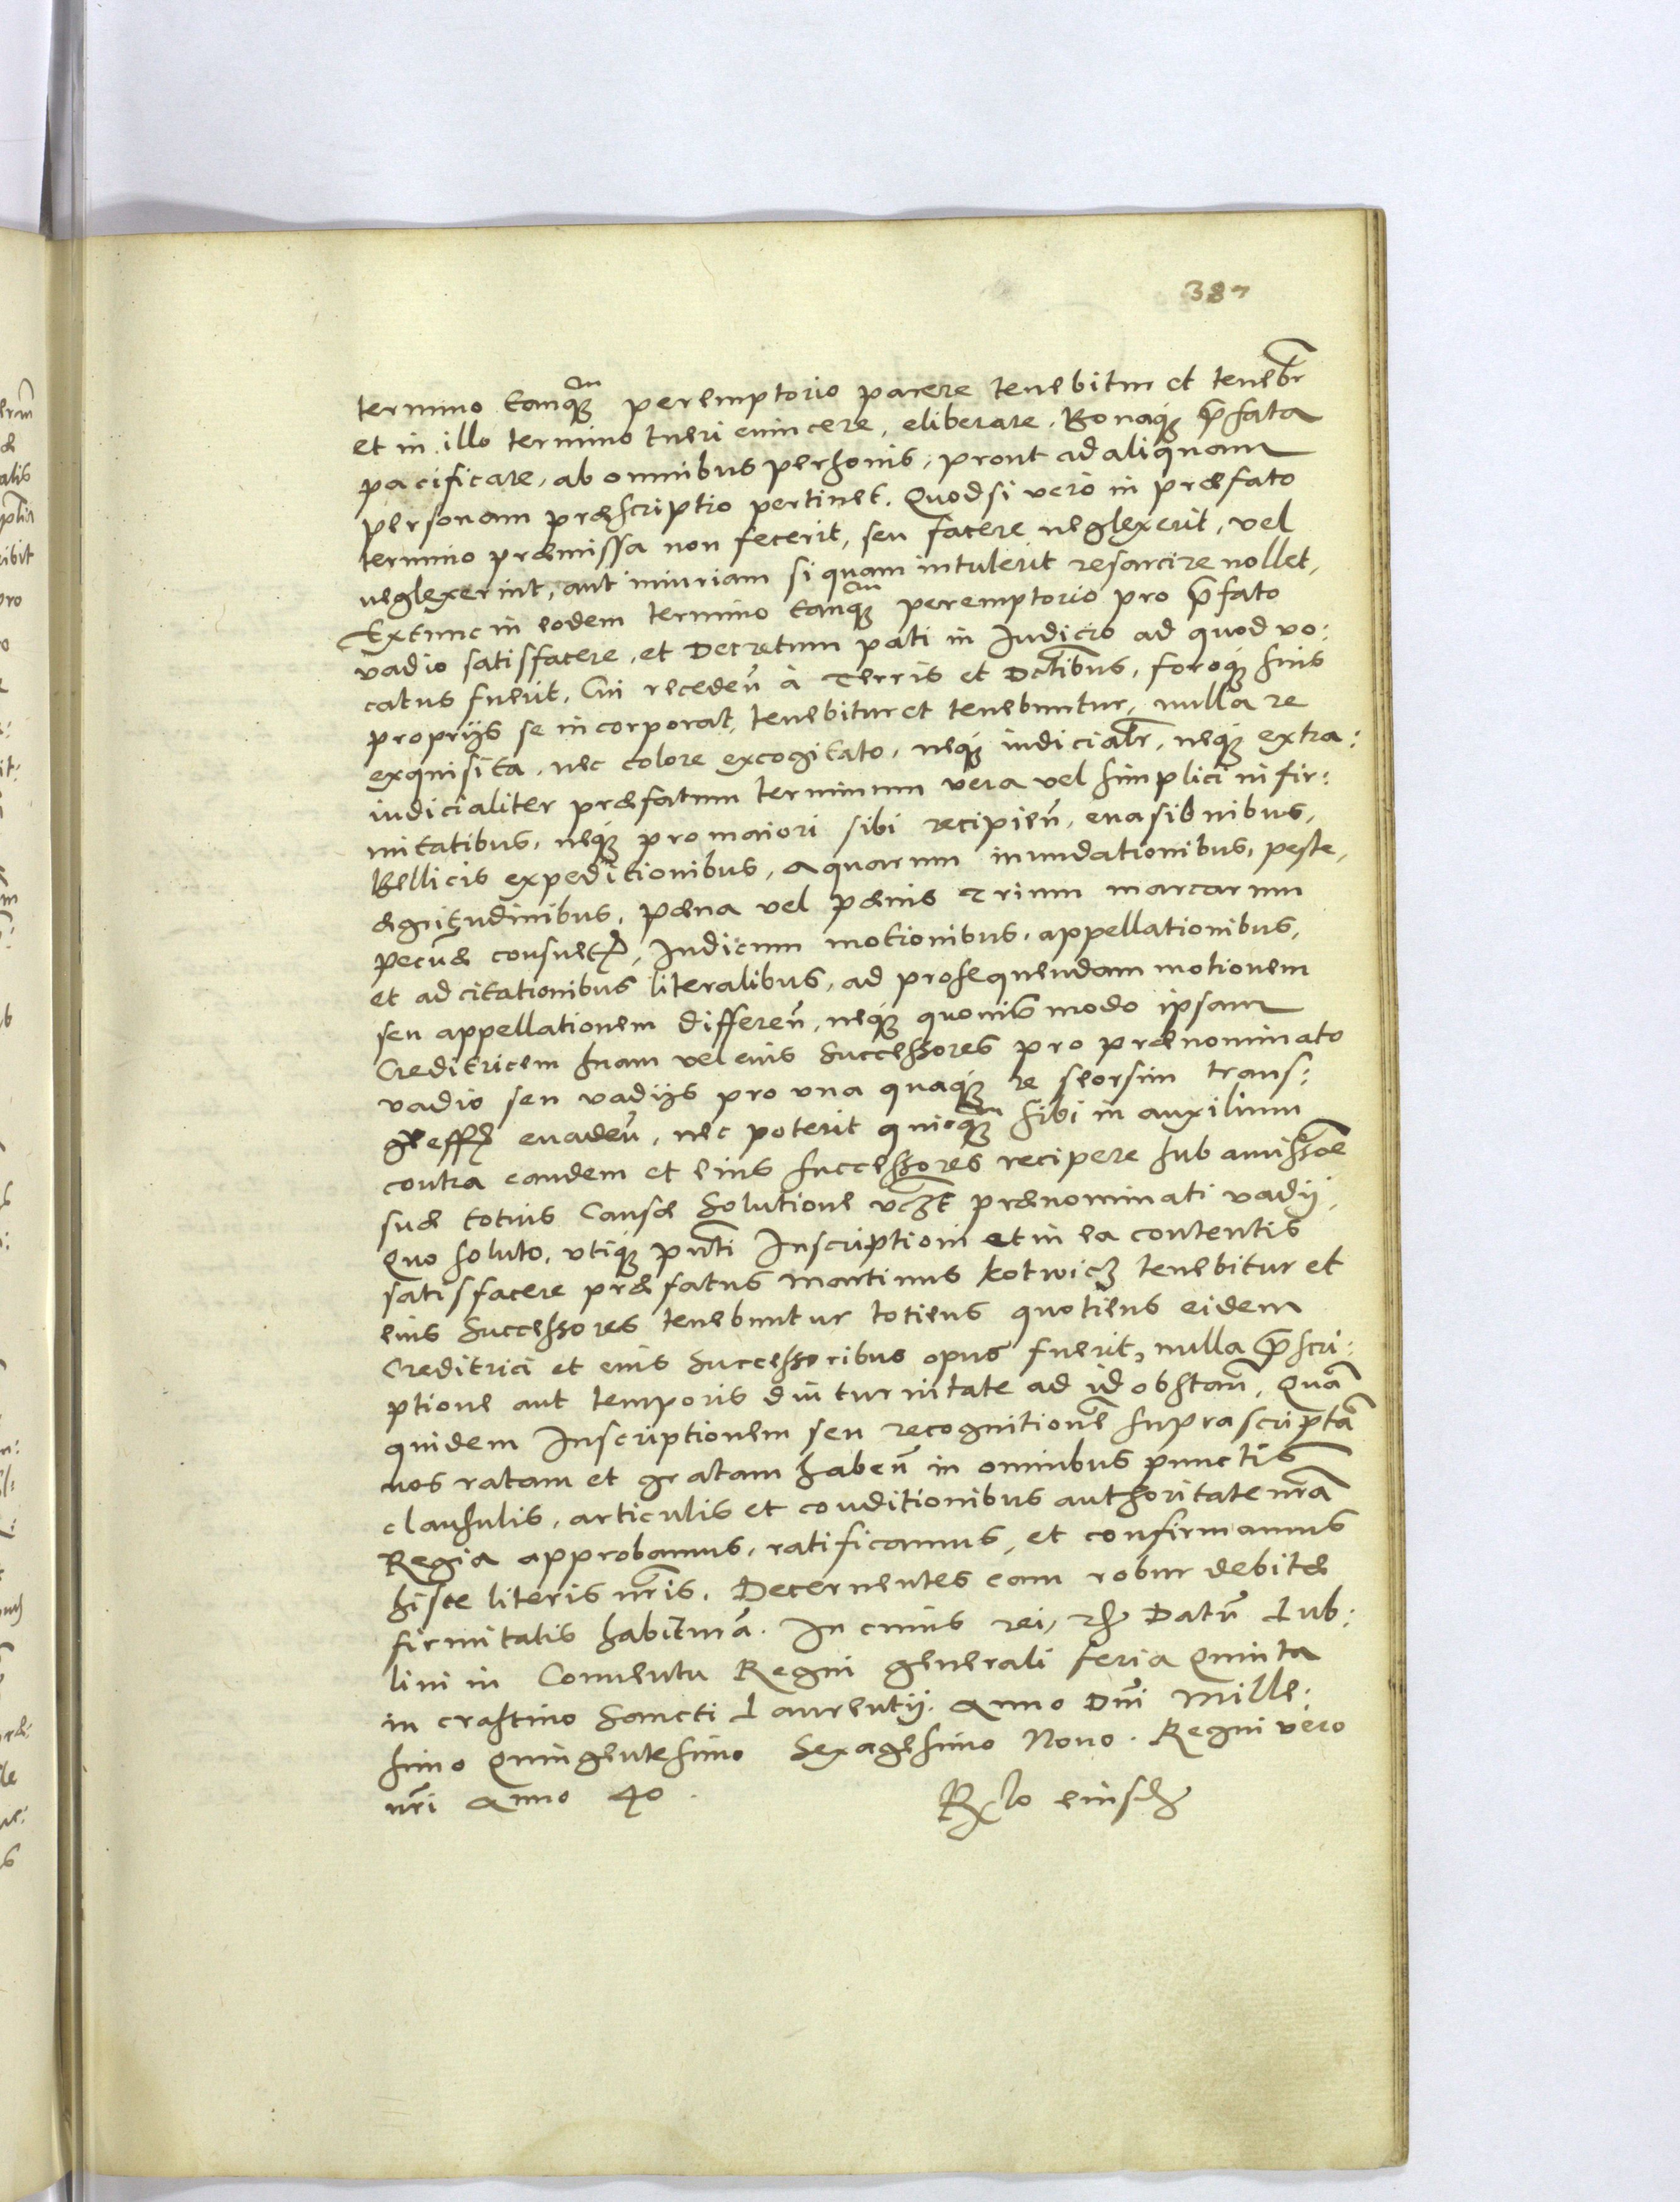 387
termino tanq̃ꝫ peremptorio parere tenebitur et tenebr̃
et in illo termino tueri euincere, eliberare, Bonaqꝫ p̃fata
pacificare, ab omnibus personis, prout ad aliquam
personam præscriptio pertinet. Quodsi vero in præfato
termino præmissa non fecerit, seu facere neglexerit, vel
neglexerint, aut iniuriam si quam intulerit resarcire nollet,
Extunc in eodem termino tanq̃ꝫ peremptorio pro p̃fato
vadio satisfacere, et Decretum pati in Iudicio ad quod vo:
catus fuerit, Cui receden̄ à Terris et Dc̃tibus, foroqꝫ suis
proprijs se incorporat, tenebitur et tenebuntur, nulla re
exquisita, nec colore excogitato, neqꝫ iudicialr̃, neqꝫ extra:
iudicialiter præfatum terminum vera vel simplici infir:
mitatibus, neqꝫ pro maiori sibi recipien̄, euasionibus,
Bellicis expeditionibus, aquarum inundationibus, peste,
ægritudinibus, pæna vel pænis Trium marcarum
pecuñæ consuetꝝ, Iudicum motionibus, appellationibus,
et ad citationibus literalibus, ad prosequendam motionem
seu appellationem differen̄, neqꝫ quouis modo ipsam
Creditricem suam vel eius Successores pro prænominato
vadio seu vadijs pro vna quaqꝫ re seorsim trans:
gressꝫ euaden̄, nec poterit quicq̃ꝫ sibi in auxilium
contra eandem et eius successores recipere sub amissiõe
suæ totius Causæ Solutione vꝫt prænominati vadij,
Quo soluto, vtiqꝫ pñti Inscriptioni et in ea contentis
satisfacere præfatus Martinus Kotwicz tenebitur et
eius Successores tenebuntur totiens quotiens eidem
Creditrici et eius Successoribus opus fuerit, nulla p̃scri:
ptione aut temporis diuturnitate ad id obstan̄, Quã
quidem Inscriptionem seu recognitionẽ suprascriptã
nos ratam et gratam haben̄ in omnibus punctis
clausulis, articulis et conditionibus authoritate nrã
Regia approbamus, ratificamus, et confirmamus
hisce literis nr̃is. Decernentes eam robur debitæ
firmitatis habiturã. In cuius rei, ꝛc̃ Datũ Lub:
lini in Conuentu Regni generali feria Quinta
in crastino Sancti Laurentij. Anno Dñi Mille:
simo Quingentesimo Sexagesimo Nono. Regni vero
nr̃i Anno 40.
Rĩo eiusdꝫ